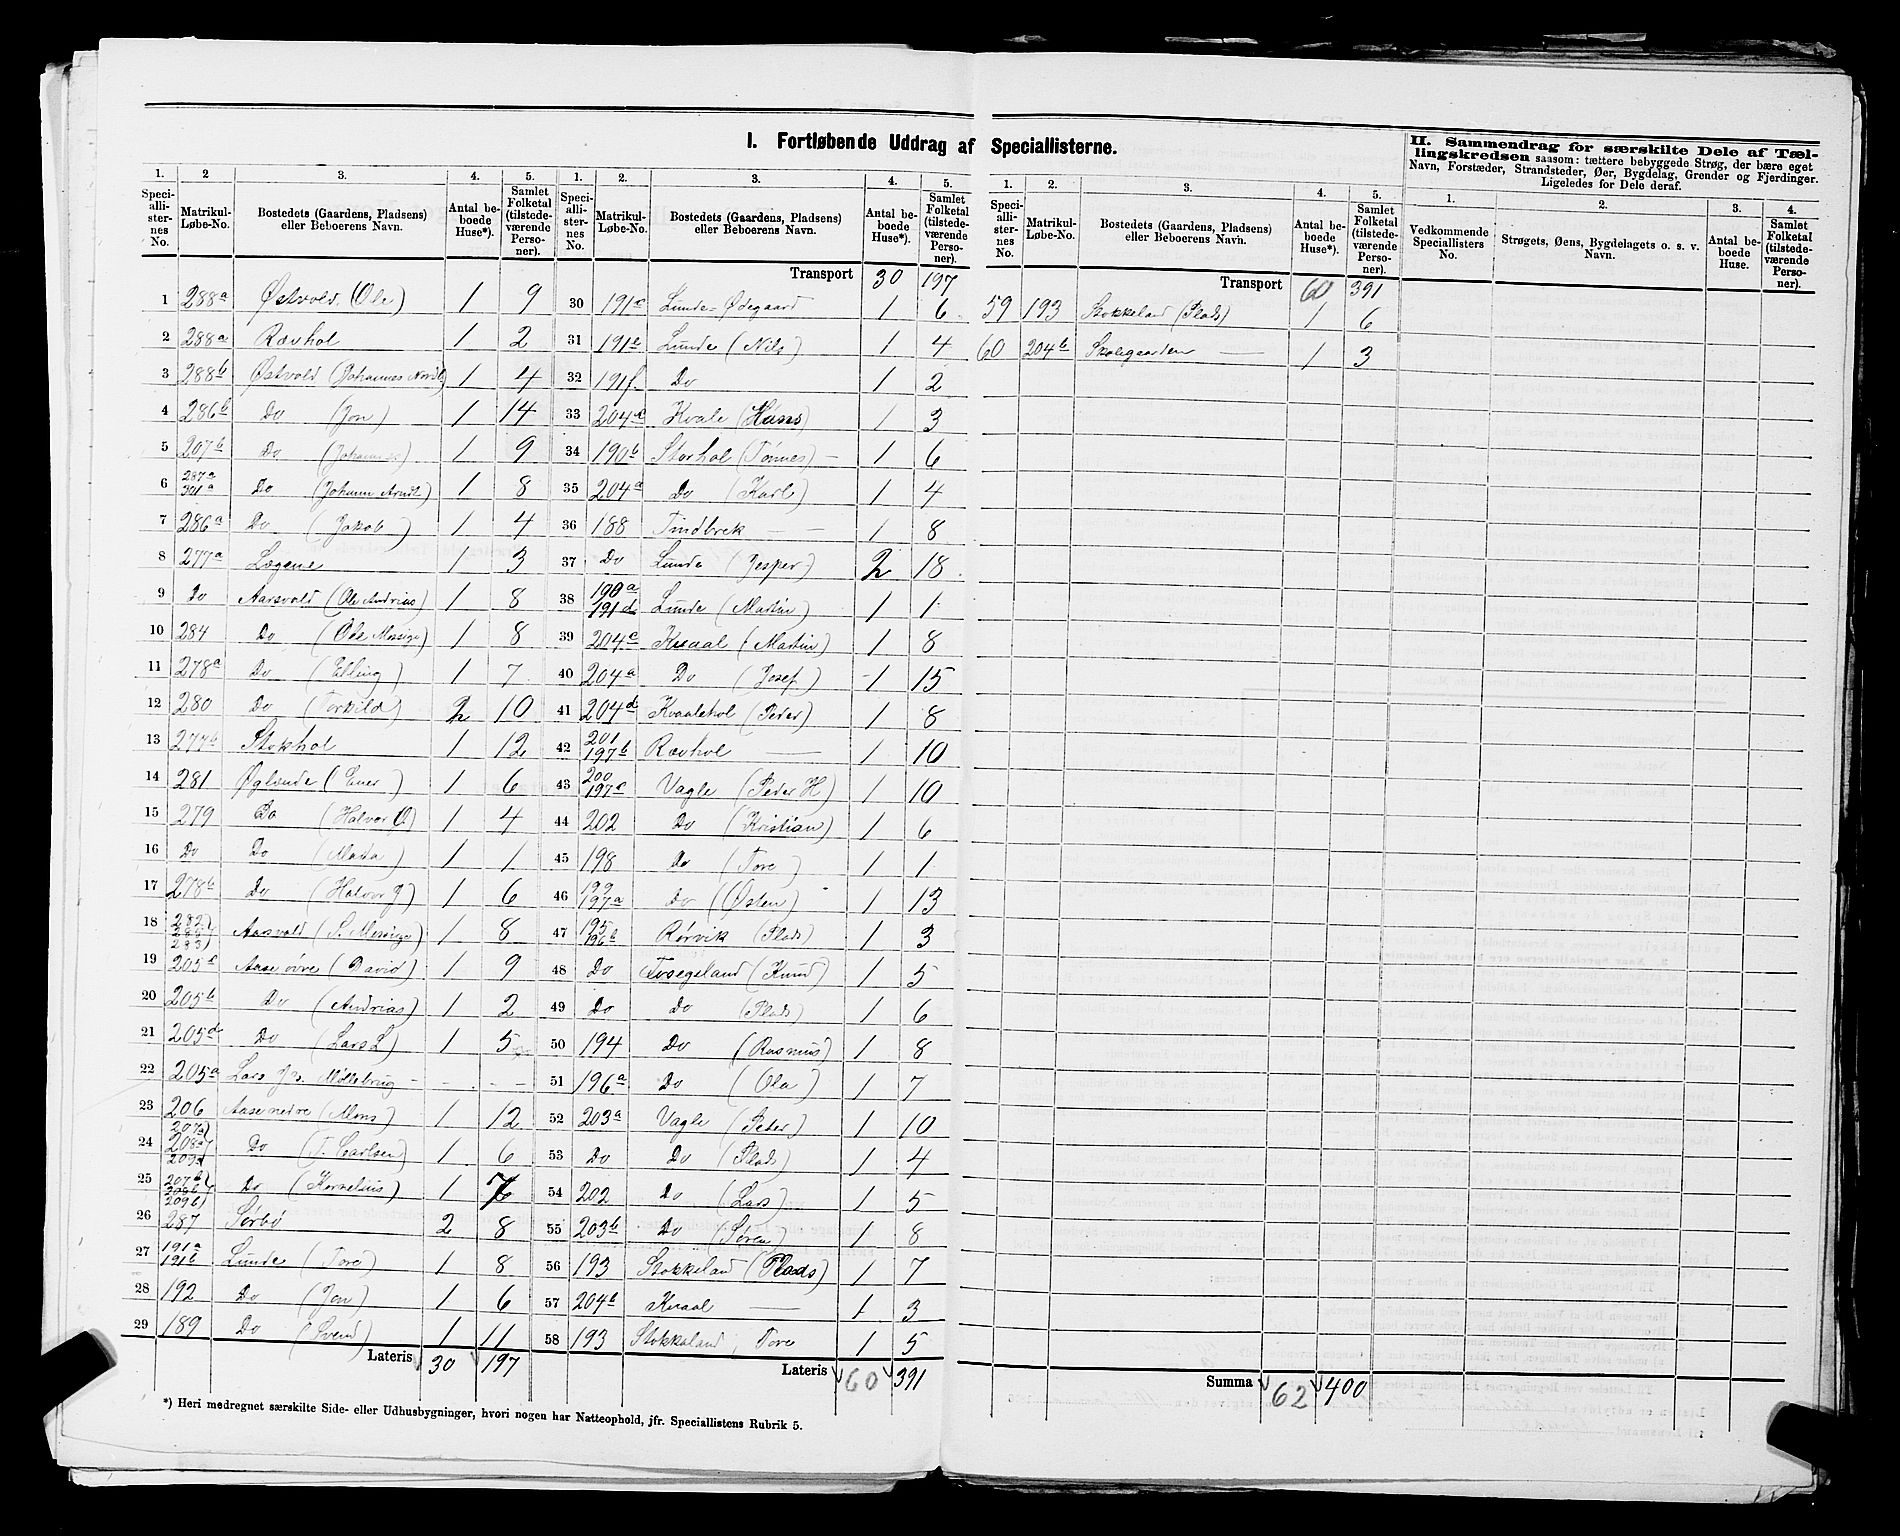 I. Fortløbende Uddrag af Speciallisterne.
1. 2 3. 4. 5.
Speciallisternes No. Matrikul-Løbe-No. Bostedets (Gaardens, Pladsens) eller Beboerens Navn. Antal beboede Huse*). Samlet Folketal (tilstedeværende Personer).
1 288a Østvold (Ole) 1 9
2 288a Rævhol 1 2
3 288b Østvold (Johannes 1 4
4 286b Do (Jon) 1 14
5 207b Do (Johannes) 1 9
6 287a 301a Do (Johann Arndt) 1 8
7 286a Do (Jakob) 1 4
8 277a Lægene 1 3
9 Do Aarsvold (Ole Andrias) 1 8
10 284 Do (Ole Mossige) 1 8
11 278a Do (Elling) 1 7
12 280 Do (Torkild) 2 10
13 277b Stokhol 1 12
14 281 Øglænde (Ener) 1 6
15 279 Do (Halvor O) 1 4
16 Do Do 1 1
17 278b Do (Halvor J) 1 6
18 282 283 Aasvold (S. Mossige) 1 8
19 205c Aase øvre (David) 1 9
20 205b Do (Andrias) 1 2
21 205d Do (Lars L) 1 5
22 205a Lars Møllebrug - - - -
23 206 Aase nedre (Mons) 1 12
24 207a 208a 209a Do (T. Carlsen) 1 6
25 207b 208b 209b Do (Kornelius) 1
26 287 Sørbø 2 8
27 191a 191b Lunde (Tore) 1 8
28 192 Do (Jon) 1 6
29 189 Do (Svend) 1 11
Lateris 30 197
*) Heri medregnet særskilte Side- eller Udhusbygninger, hvori nogen har Natteophold, jfr. Speciallistens Rubrik 5.
1. 2. 3. 4. 5.
Speciallisternes No. Matrikul-Løbe-No. Bostedets (Gaardens, Pladsens) eller Beboerens Navn. Antal beboede Huse*). Samlet Folketal (tilstedeværende Personer).
Transport 30 197
30 191c Lunde-Ødegaard 1 6
31 191e Lunde (Nils) 1 4
32 191f Do 1 2
33 204c Kvale (Hans) 1 3
34 190b Storhol (Tønnes) - 1 6
35 204a Do (Karl) 1 4
36 188 Tindbrek - 1 8
37 Do Lunde (Jesper) 2 18
38 190a 191d Lunde (Martin) 1 1
39 204e Kvaal (Martin) 1 8
40 204a Do (Josef) 1 15
41 204d Kvaalehol (Peder) 1 8
42 201 197b Rævhol — 1 10
43 200 197c Vagle (Peder H) 1 10
44 202 Do (Kristian) 1 6
45 198 Do (Tore) 1 1
46 199 197a Do (Østen) 1 13
47 195 196b Rørvik (Plads) 1 3
48 Do (Knud) 1 5
49 Do Do (Plads) 1 6
50 194 Do (Rasmus) 1 8
51 196a Do (Ola) 1 7
52 203a Vagle (Peter) 1 10
53 Do Do (Plads) 1 4
54 202 Do (Lars) 1 5
55 203b Do (Søren) 1 8
56 193 Stokkeland (Plads) 1 7
57 204b Kvaal — 1 3
58 193 Stokkeland, Tore 1 5
Lateris 60 391
1. 2. 3. 4. 5.
Speciallisternes No. Matrikul-Løbe-No. Bostedets (Gaardens, Pladsens) eller Beboerens Navn. Antal beboede Huse*). Samlet Folketal (tilstedeværende Personer).
Transport 60 391
59 193 Stokkeland (Plads) 1 6
60 204b Skolegaarden — 1 3
Summa 62 400
II. Sammendrag for særskilte Dele af Tællingskredsen saasom: tættere bebyggede Strøg, der bære eget
Navn, Forstæder, Strandsteder, Øer, Bygdelag, Grender og Fjerdinger.
Ligeledes for Dele deraf.
1. 2. 3. 4.
Vedkommende Speciallisters No. Strøgets, Øens, Bygdelagets o. s. v. Navn. Antal beboede Huse. Samlet Folketal (tilstedeværende Personer).